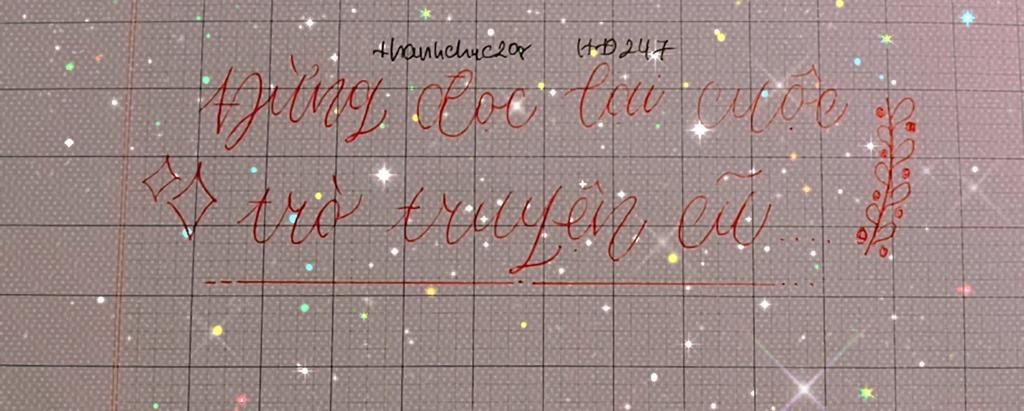 thanhchuc209 HD247
Đừng đọc lại cuộc
trò truyện cũ....